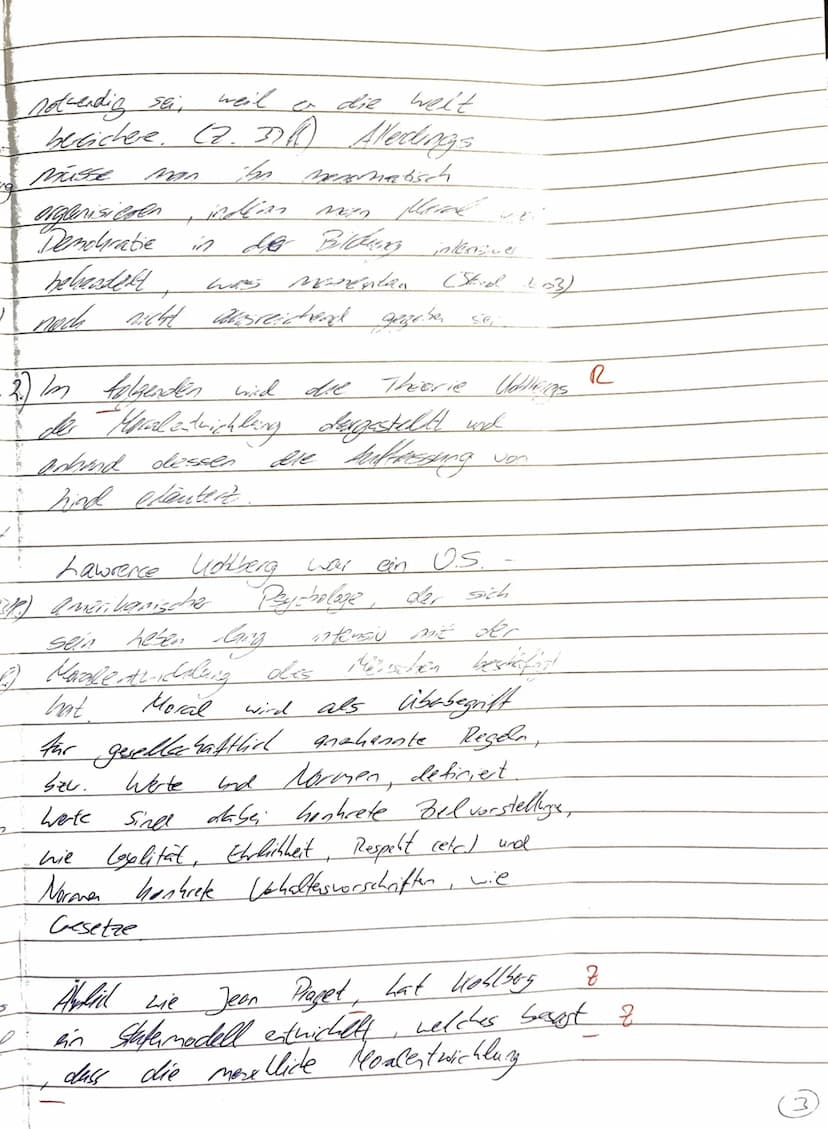 notwendig sei, weil er die Welt
bereichere. (Z. 37f) Allerdings
müsse man ihn
organisieren, indem man Moral
Demokratie in der Bildung intensiver
behandelt, was momentan (Stand
noch nicht ausreichend gegeben sei
2.) Im folgenden wird die Theorie Kohlbergs R
der Moralentwicklung dargestellt und
anhand dessen die Auffassung von
Lind erläutert.
Lawrence Kohlberg war ein U.S.-
amerikanischer Psychologe, der sich
sein Leben lang intensiv mit der
Moralentwicklung des Menschen beschäftigt
hat. Moral wird als Überbegriff
für gesellschaftlich anerkannte Regeln,
bzw. Werte und Normen, definiert.
Werte sind dabei konkrete Zielvorstellungen,
wie Loyalität, Ehrlichkeit, Respekt (etc.) und
Normen konkrete Verhaltensvorschriften, wie
Gesetze.
Ähnlich wie Jean Piaget, hat Kohlberg Z
ein Stufenmodell entwickelt, welches besagt Z
, dass die Moralentwicklung
3